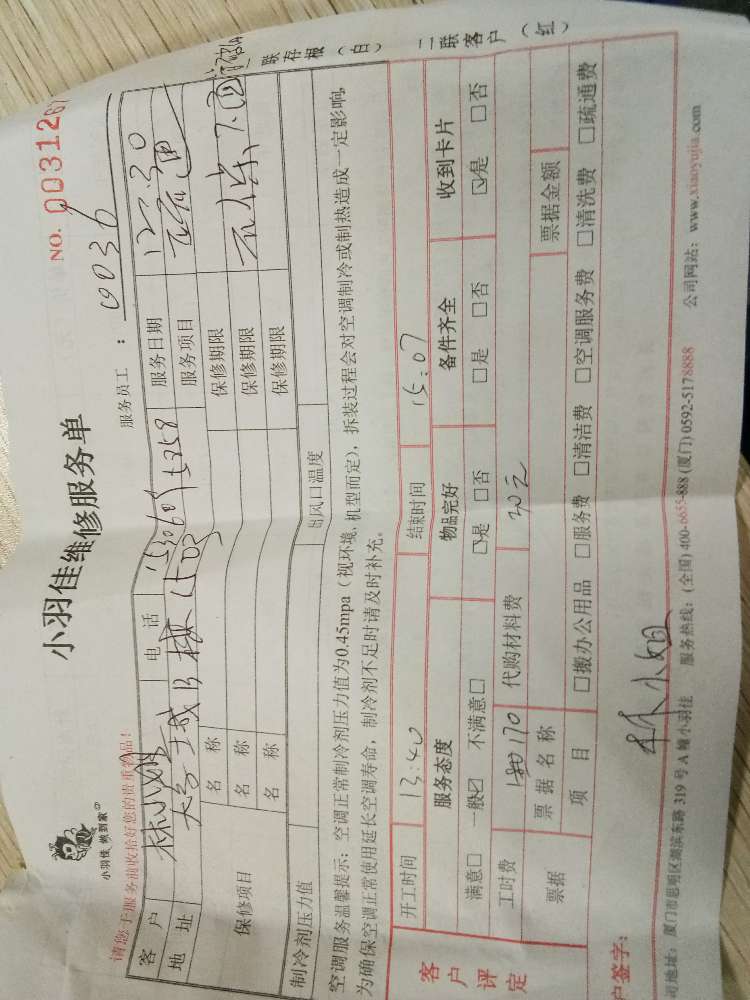 小羽佳维修服务单
NO. 0031261
小羽佳 她到家
服务员工： 0036
请您于服务前收拾好您的贵重物品！
客户 林小姐 电话 服务日期 12.30
地址 服务项目
保修项目 名称 保修期限
名称 保修期限
名称 保修期限
制冷剂压力值 出风口温度
空调服务温馨提示：空调正常制冷剂压力值为0.45mpa（视环境，机型而定），拆装过程会对空调制冷或制热造成一定影响，
为确保空调正常使用延长空调寿命，制冷剂不足时请及时补充。
联存根（白）
二联客户（红）
客户评定
开工时间 13:40 结束时间 15:07
服务态度 物品完好 备件齐全 收到卡片
满意□ 一般☑ 不满意□ ☑是 □否 □是 □否 ☑是 □否
工时费 170 代购材料费 30元
票据 票据名称 票据金额
项目 □搬办公用品 □服务费 □清洁费 □空调服务费 □清洗费 □疏通费
户签字： 林小姐
司地址：厦门市思明区湖滨东路319号A幢小羽佳 服务热线：(全国) 400-6655-888 (厦门) 0592-5178888 公司网站：www.xiaoyujia.com